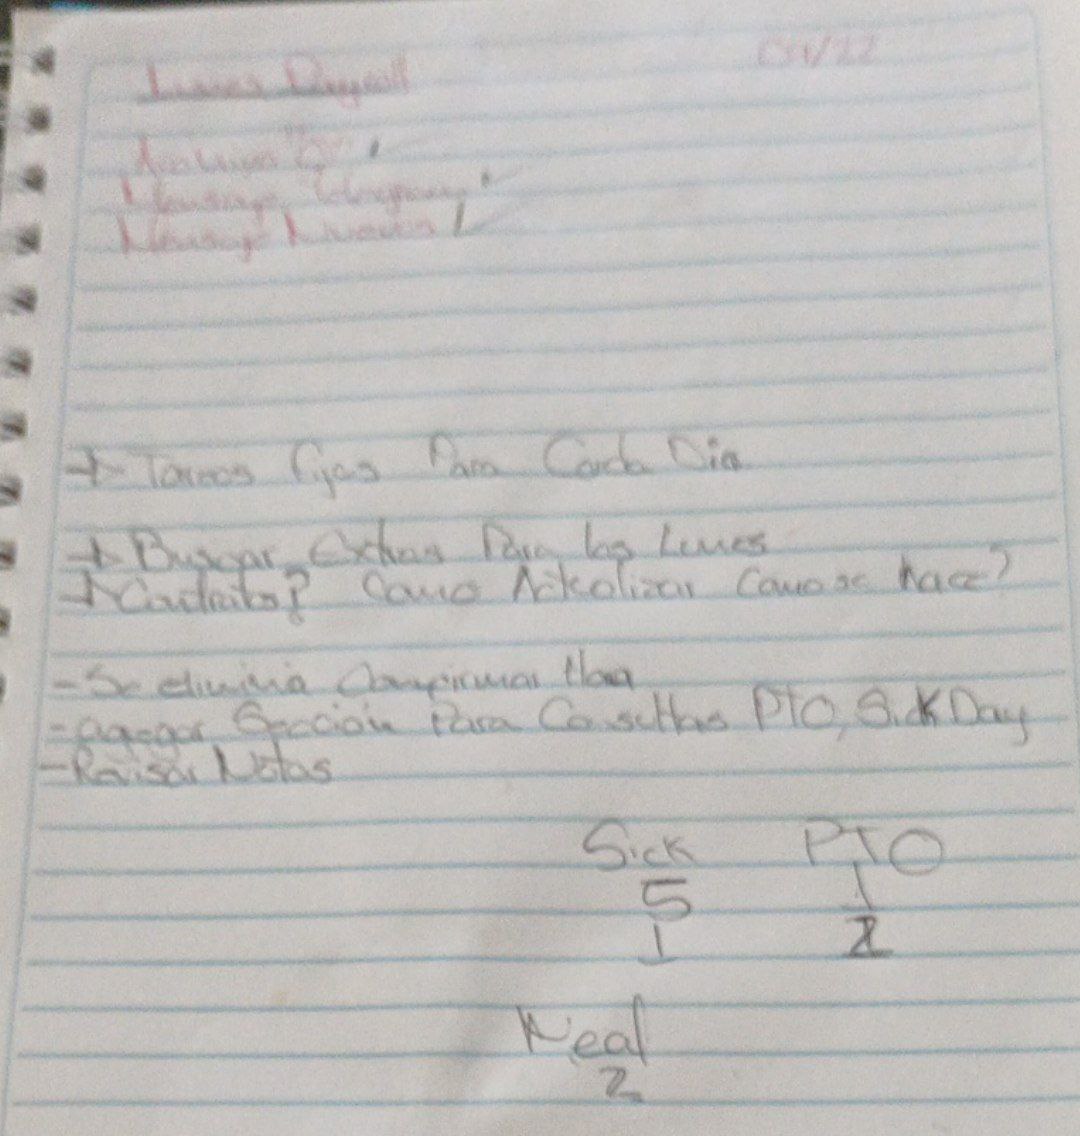 Lunes Payroll
Mensaje
Mensaje
→ Turnos fijos Para Cada Dia
→ Buscar Extras Para los Lunes
→ ? Como Como se hace?
- Se elimina Confirmar Hora
- agegar Sección Para Consultas PTO, Sick Day
- Revisar Notas
Sick PTO
5 1
1 2
Neal
2